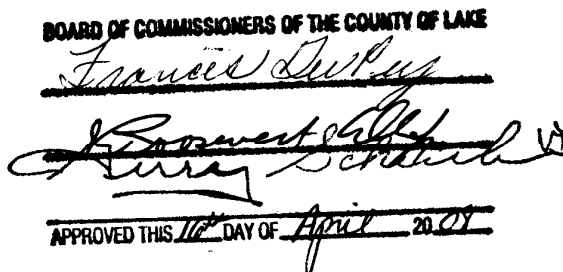 BOARD OF COMMISSIONERS OF THE COUNTY OF LAKE
Frances DuPey
Roosevelt Allen
APPROVED THIS 16th DAY OF April 2008